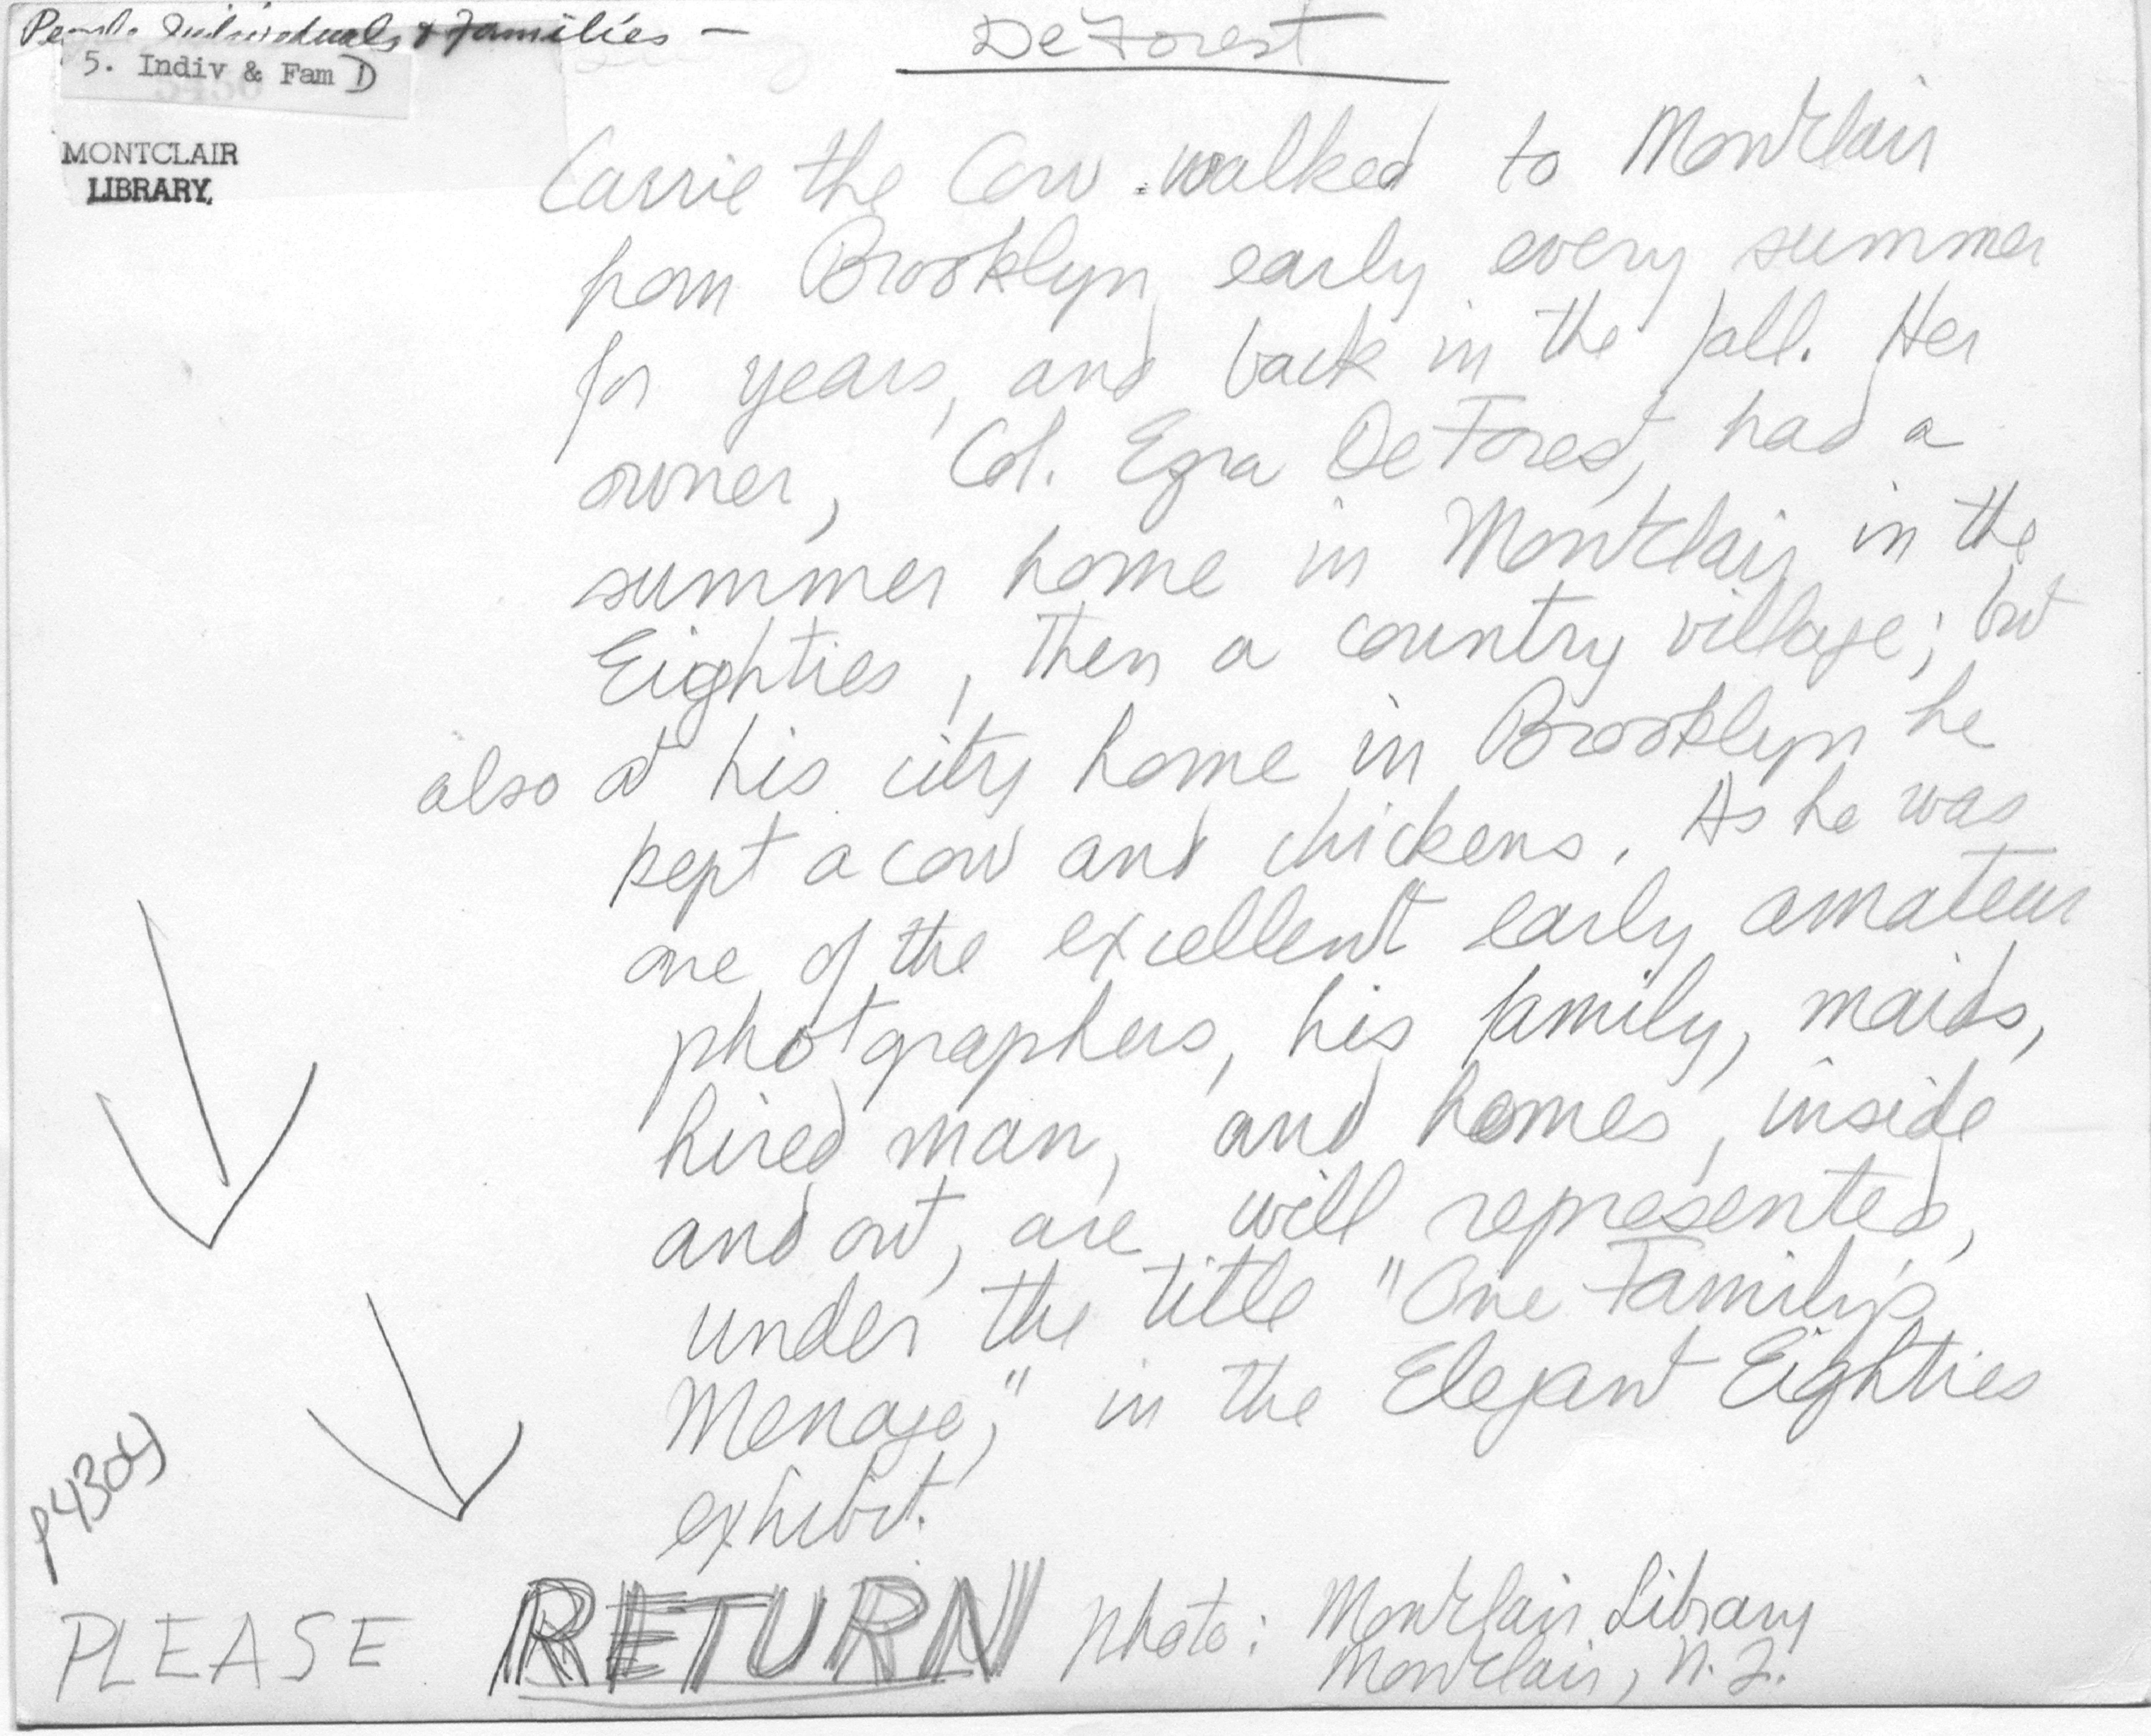 People Individuals & Families —
DeForest
5. Indiv & Fam D
MONTCLAIR
LIBRARY,
Carrie the Cow walked to Montclair
from Brooklyn early every summer
for years, and back in the fall. Her
owner, Col. Ezra DeForest, had a
summer home in Montclair in the
Eighties, then a country village; but
also at his city home in Brooklyn he
kept a cow and chickens. As he was
one of the excellent early amateur
photographers, his family, maids,
hired man, and homes, inside
and out, are well represented,
under the title "One Family's
Menage," in the Elegant Eighties
exhibit.
PLEASE RETURN
photo: Montclair Library
Montclair, N.J.